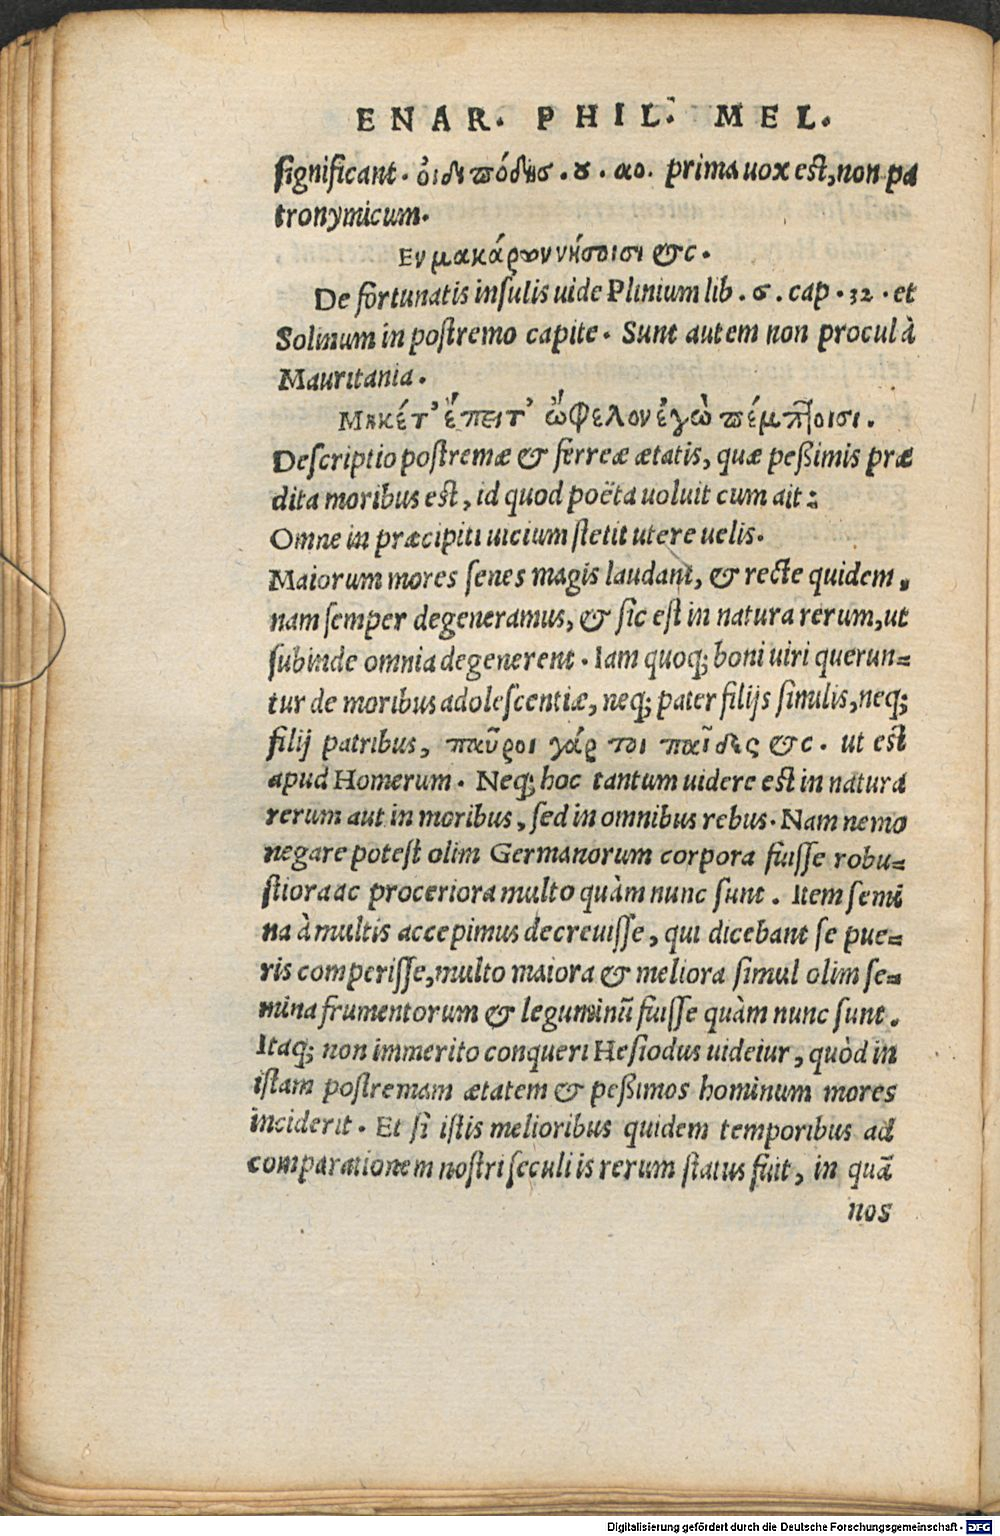 ENAR. PHIL. MEL.
significant. οἰδιπόδης . ȣ . αο. prima uox est, non pa
tronymicum.
Εν μακάρων νήσοισι &c.
De fortunatis insulis uide Plinium lib. 6. cap. 32. et
Solinum in postremo capite. Sunt autem non procul à
Mauritania.
Μηκέτ' ἔπειτ' ὤφελον ἐγὼ πέμπτοισι.
Descriptio postremæ & ferreæ ætatis, quæ peßimis præ
dita moribus est, id quod poëta uoluit cum ait:
Omne in præcipiti uicium stetit utere uelis.
Maiorum mores senes magis laudant, & recte quidem,
nam semper degeneramus, & sic est in natura rerum, ut
subinde omnia degenerent. Iam quoq; boni uiri querun=
tur de moribus adolescentiæ, neq; pater filijs similis, neq;
filij patribus, παῦροι γάρ τοι παῖδες &c. ut est
apud Homerum. Neq; hoc tantum uidere est in natura
rerum aut in moribus, sed in omnibus rebus. Nam nemo
negare potest olim Germanorum corpora fuisse robu=
stiora ac proceriora multo quàm nunc sunt. Item semi
na à multis accepimus decreuisse, qui dicebant se pue=
ris comperisse, multo maiora & meliora simul olim se=
mina frumentorum & leguminū fuisse quàm nunc sunt.
Itaq; non immerito conqueri Hesiodus uidetur, quòd in
istam postremam ætatem & peßimos hominum mores
inciderit. Et si istis melioribus quidem temporibus ad
comparationem nostri seculi is rerum status fuit, in quā
nos
Digitalisierung gefördert durch die Deutsche Forschungsgemeinschaft - DFG